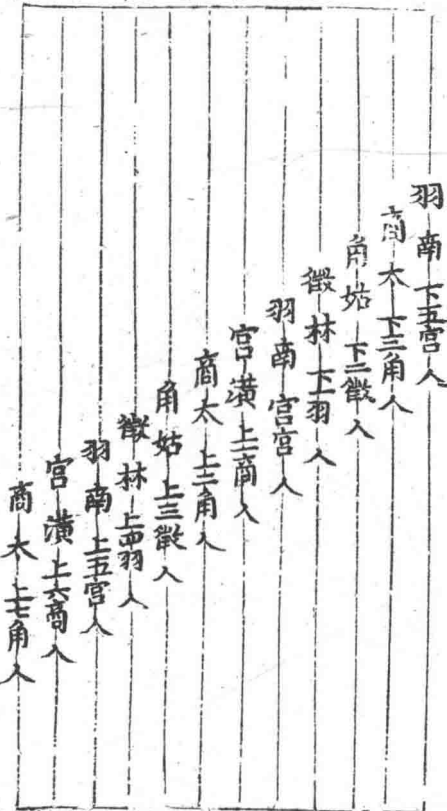 羽南下五宮人
商太下三角人
角姑下二徵人
徵林下一羽人
羽南宮宮人
宮潢上一商人
商太上二角人
角姑上三徵人
徵林上四羽人
羽南上五宮人
宮潢上六商人
商太上七角人